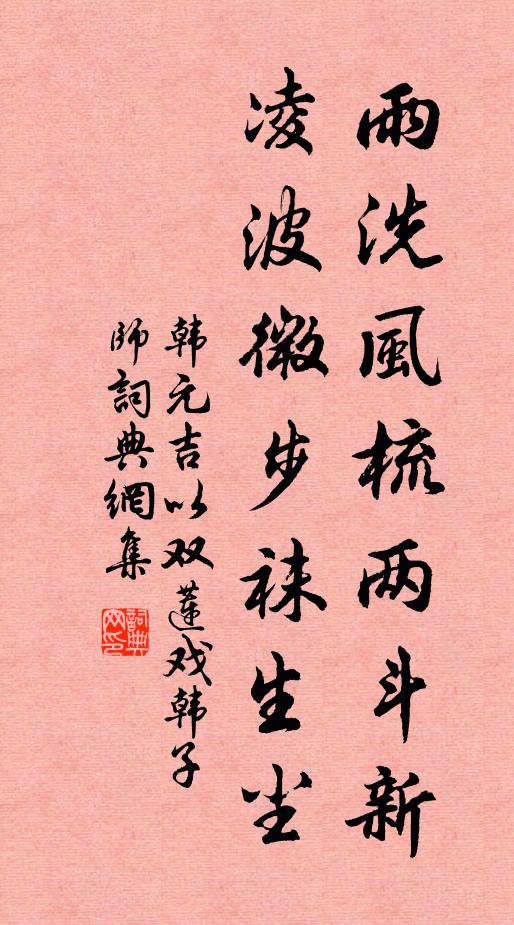 雨洗風梳两斗新
凌波微步袜生尘
韩元吉以双蓮戏韩子
師詞典網集
詞典网印